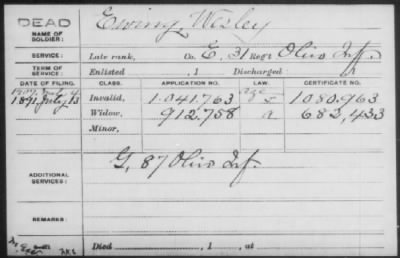 DEAD
NAME OF SOLDIER: Ewing Wesley
SERVICE: Late rank, Co. E, 31 Reg't Ohio Inf.
TERM OF SERVICE: Enlisted , 1 Discharged , 1
DATE OF FILING. CLASS. APPLICATION NO. LAW. CERTIFICATE NO.
Invalid, 1.041.763 1.080.963
1891 July 13 Widow, 912.758 a 682,433
Minor,
ADDITIONAL SERVICES: G, 87 Ohio Inf.
REMARKS:
Died , 1 , at